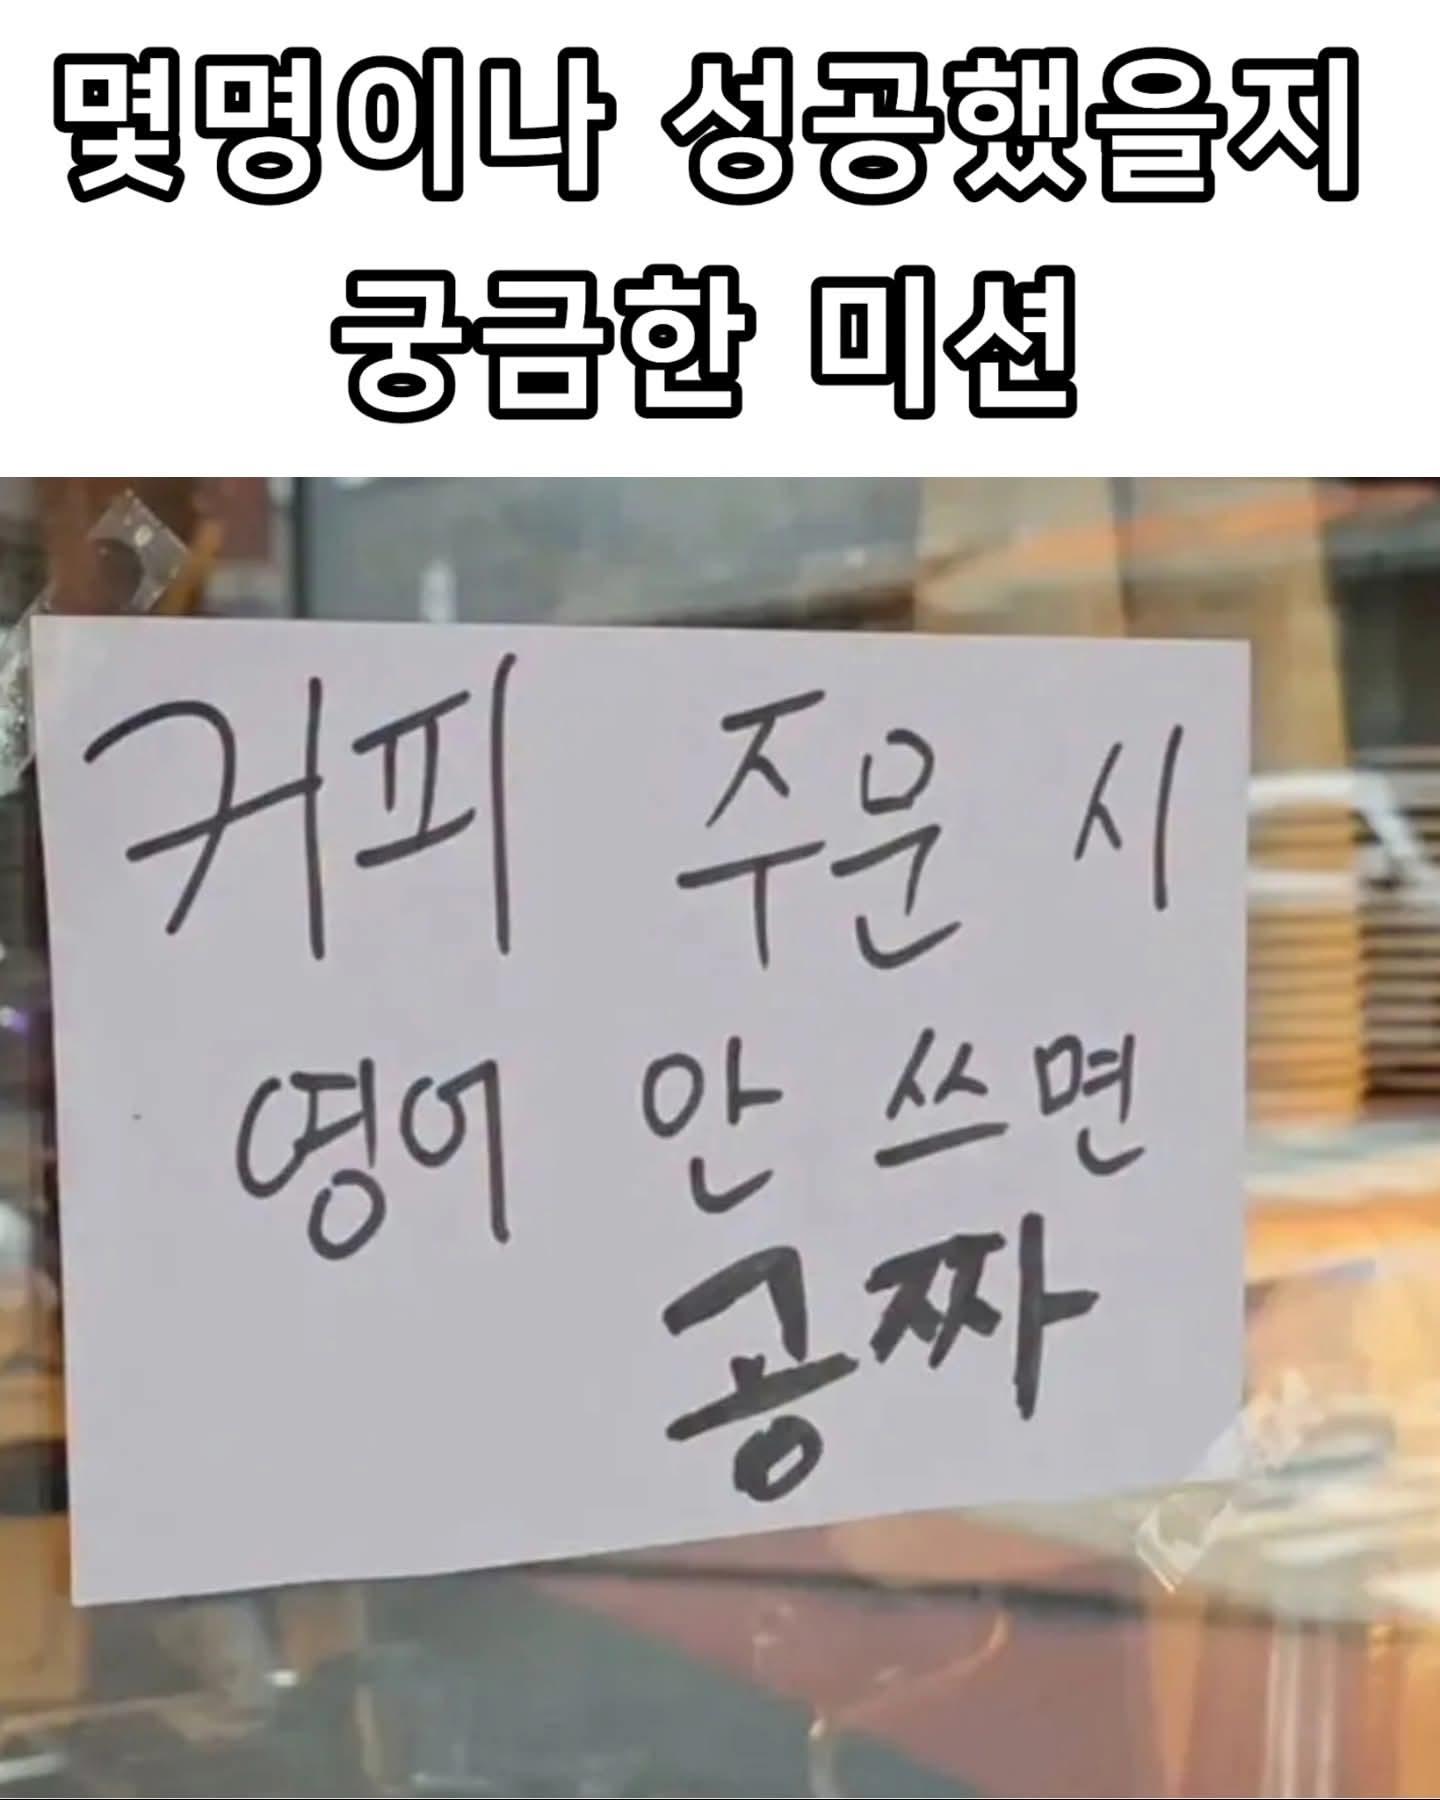 몇명이나 성공했을지
궁금한 미션
커피 주문 시
영어 안 쓰면
공짜